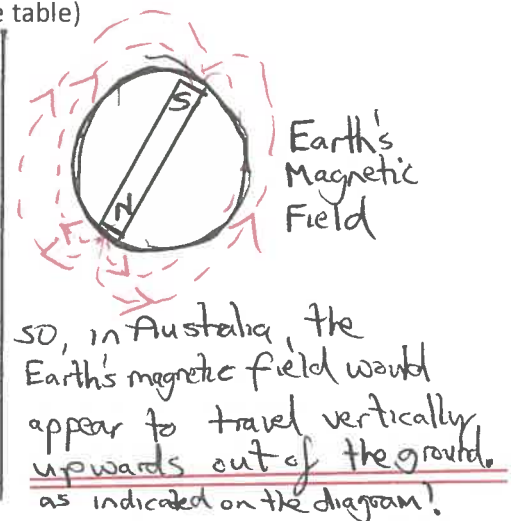 e table)
S
N
Earth's
Magnetic
Field
so, in Australia, the
Earth's magnetic field would
appear to travel vertically
upwards out of the ground.
as indicated on the diagram!